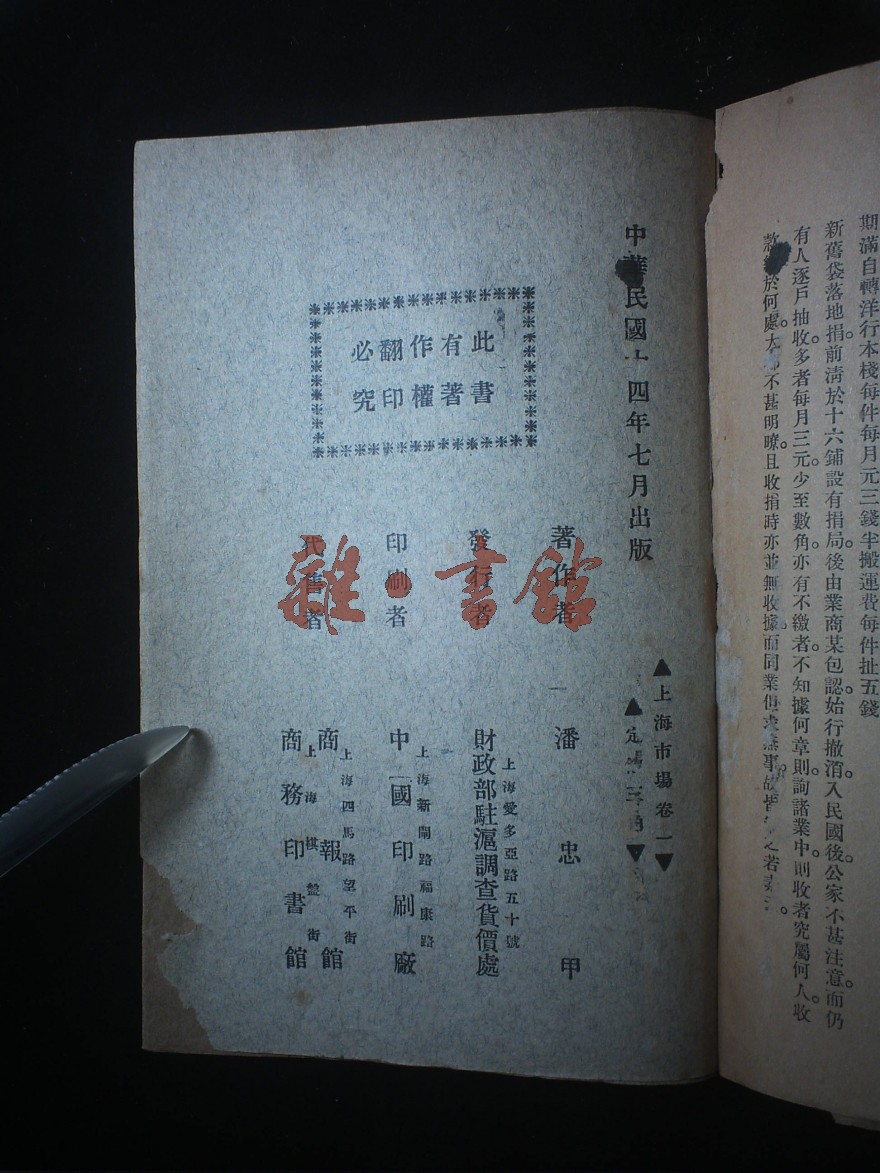 期滿自轉洋行本棧每件每月元三錢半搬運費每件扯五錢
新舊袋落地捐。前清於十六鋪設有捐局。後由業商某包認。始行撤消。入民國後。公家不甚注意。而仍
有人逐戶抽收。多者每月三元。少至數角。亦有不繳者。不知據何章則。詢諸業中。則收者究屬何人。收
於何處。大都不甚明瞭。且收捐時亦並無收據。而同業但求無事。故皆
中華民國十四年七月出版
▲上海市場卷一▼
▲定價
此書
有著
作權
翻印
必究
著作者 潘忠甲
發行者 上海愛多亞路五十號
財政部駐滬調查貨價處
印刷者 上海新閘路福康路
中國印刷廠
代售者 上海四馬路望平街
商報館
上海棋盤街
商務印書館
雜·書館